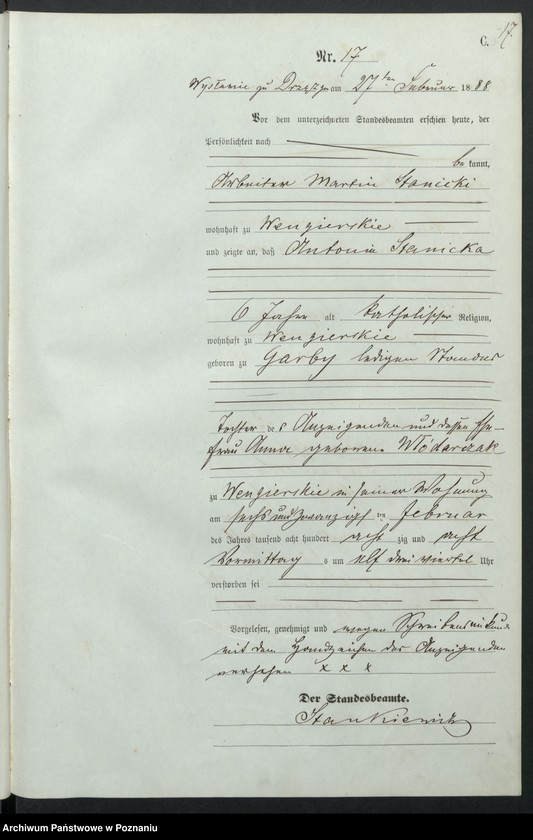 17.
C.
Nr. 17
am 27ten Februar 1888
Vor dem unterzeichneten Standesbeamten erschien heute, der
Persönlichkeit nach
be kannt,
Arbeiter Martin Stanicki
wohnhaft zu Wengierskie
und zeigte an, daß Antonia Stanicka
6 Jahre alt katholischer Religion,
wohnhaft zu Wengierskie
geboren zu Garby ledigen Standes
Tochter des Anzeigenden und dessen Ehe-
frau Anna geborene Włódarczak
zu Wengierskie in seiner Wohnung
am sechs und zwanzigsten Februar
des Jahres tausend acht hundert acht zig und acht
Vormittag s um elf drei viertel Uhr
verstorben sei
Vorgelesen, genehmigt und wegen Schreibensunkunde
mit dem Handzeichen des Anzeigenden
versehen x x x
Der Standesbeamte.
Stankiewitz
Archiwum Państwowe w Poznaniu